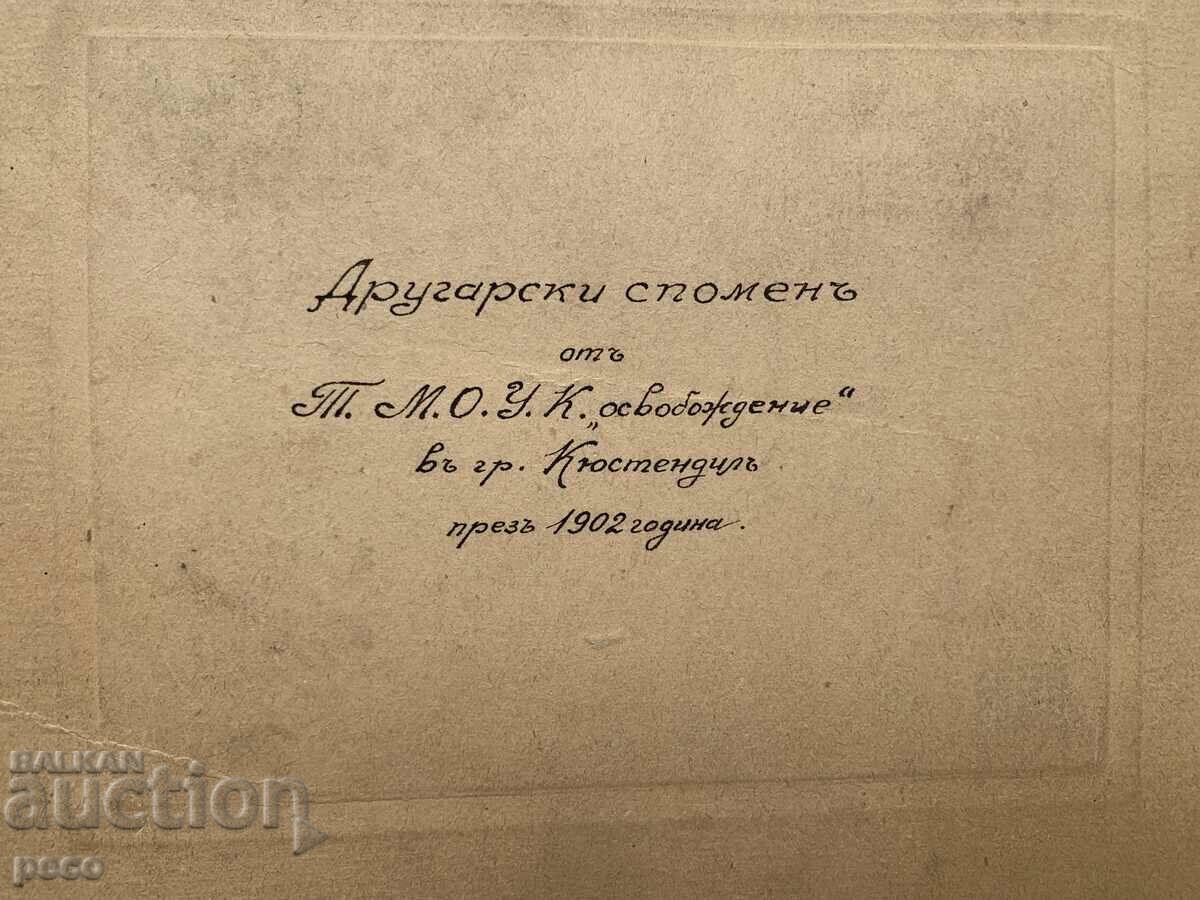 Другарски споменъ
отъ
Т. М. О. У. К. „освобождение“
въ гр. Кюстендилъ
презъ 1902 година.
BALKAN
auction
peco